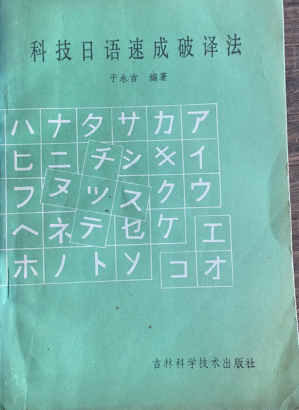 科技日语速成破译法
于永吉 编著
ハナタサカア
ヒニチシキイ
フヌツスクウ
ヘネテセケエ
ホノトソコオ
吉林科学技术出版社